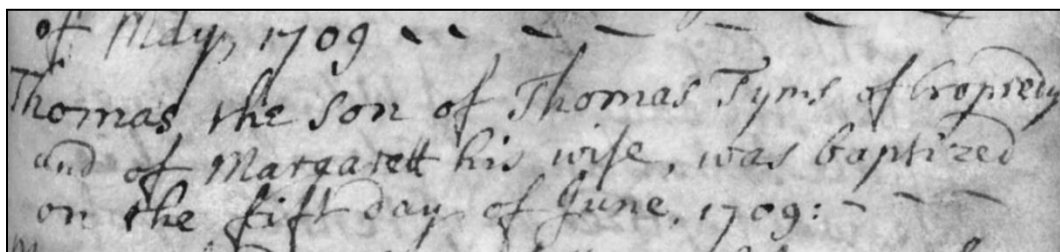 of May, 1709
Thomas the son of Thomas Tyms of Cropredy
and of Margarett his wife, was baptized
on the fift day of June, 1709: